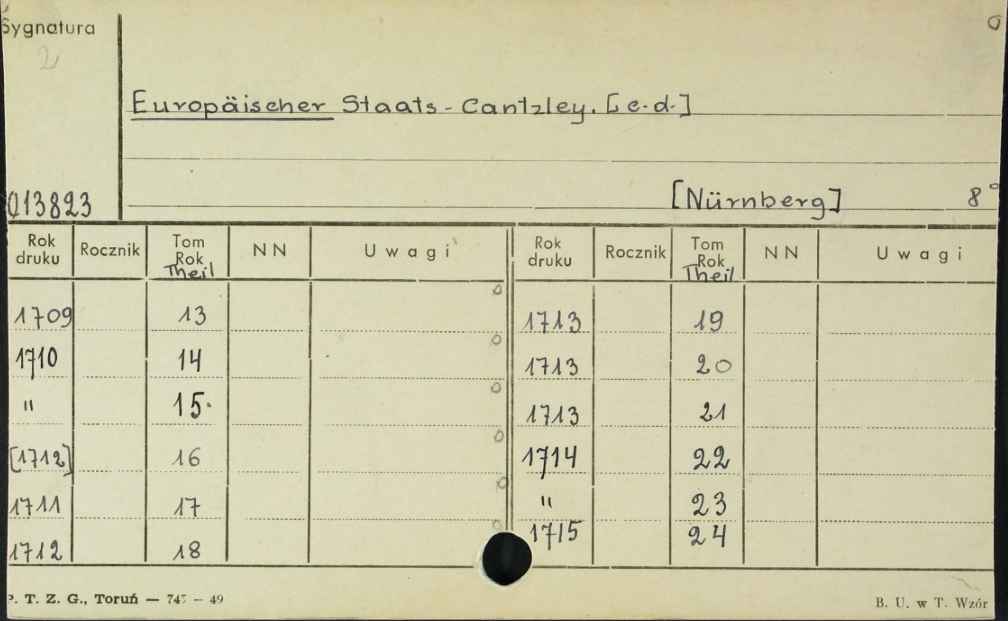 Sygnatura
2
Europäischer Staats-Cantzley. [c.d.]
013823
[Nürnberg] 8°
Rok druku Rocznik Tom Rok Theil NN Uwagi Rok druku Rocznik Tom Rok Theil NN Uwagi
1709 13 1713 19
1710 14 1713 20
" 15. 1713 21
[1712] 16 1714 22
1711 17 " 23
1712 18 1715 24
P. T. Z. G., Toruń — 745 — 49 B. U. w T. Wzór